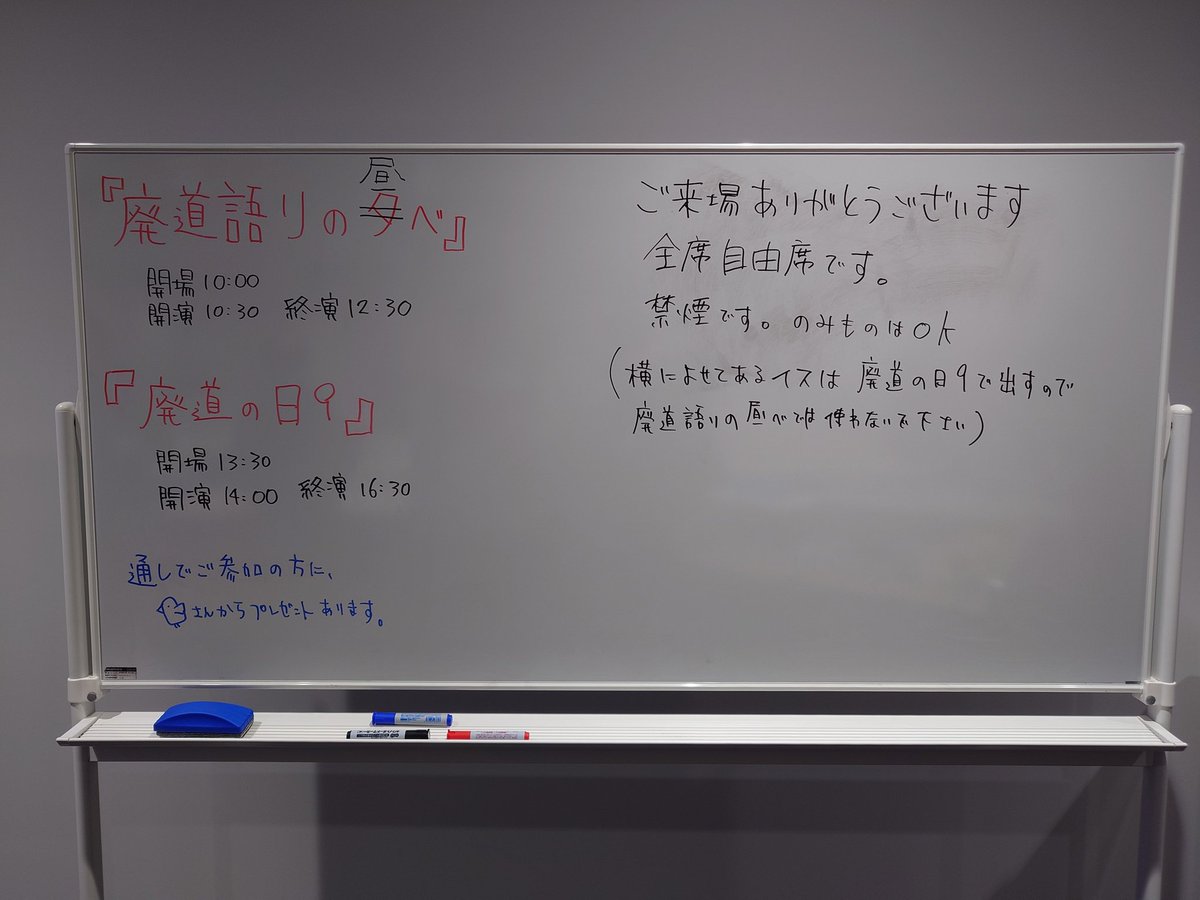 『廃道語りの夕べ』
昼
開場 10:00
開演 10:30 終演 12:30
『廃道の日9』
開場 13:30
開演 14:00 終演 16:30
通しでご参加の方に、
さんからプレゼントあります。
ご来場ありがとうございます
全席自由席です。
禁煙です。のみものはOK
(横によせてあるイスは 廃道の日9で出すので
廃道語りの昼べでは使わないで下さい)